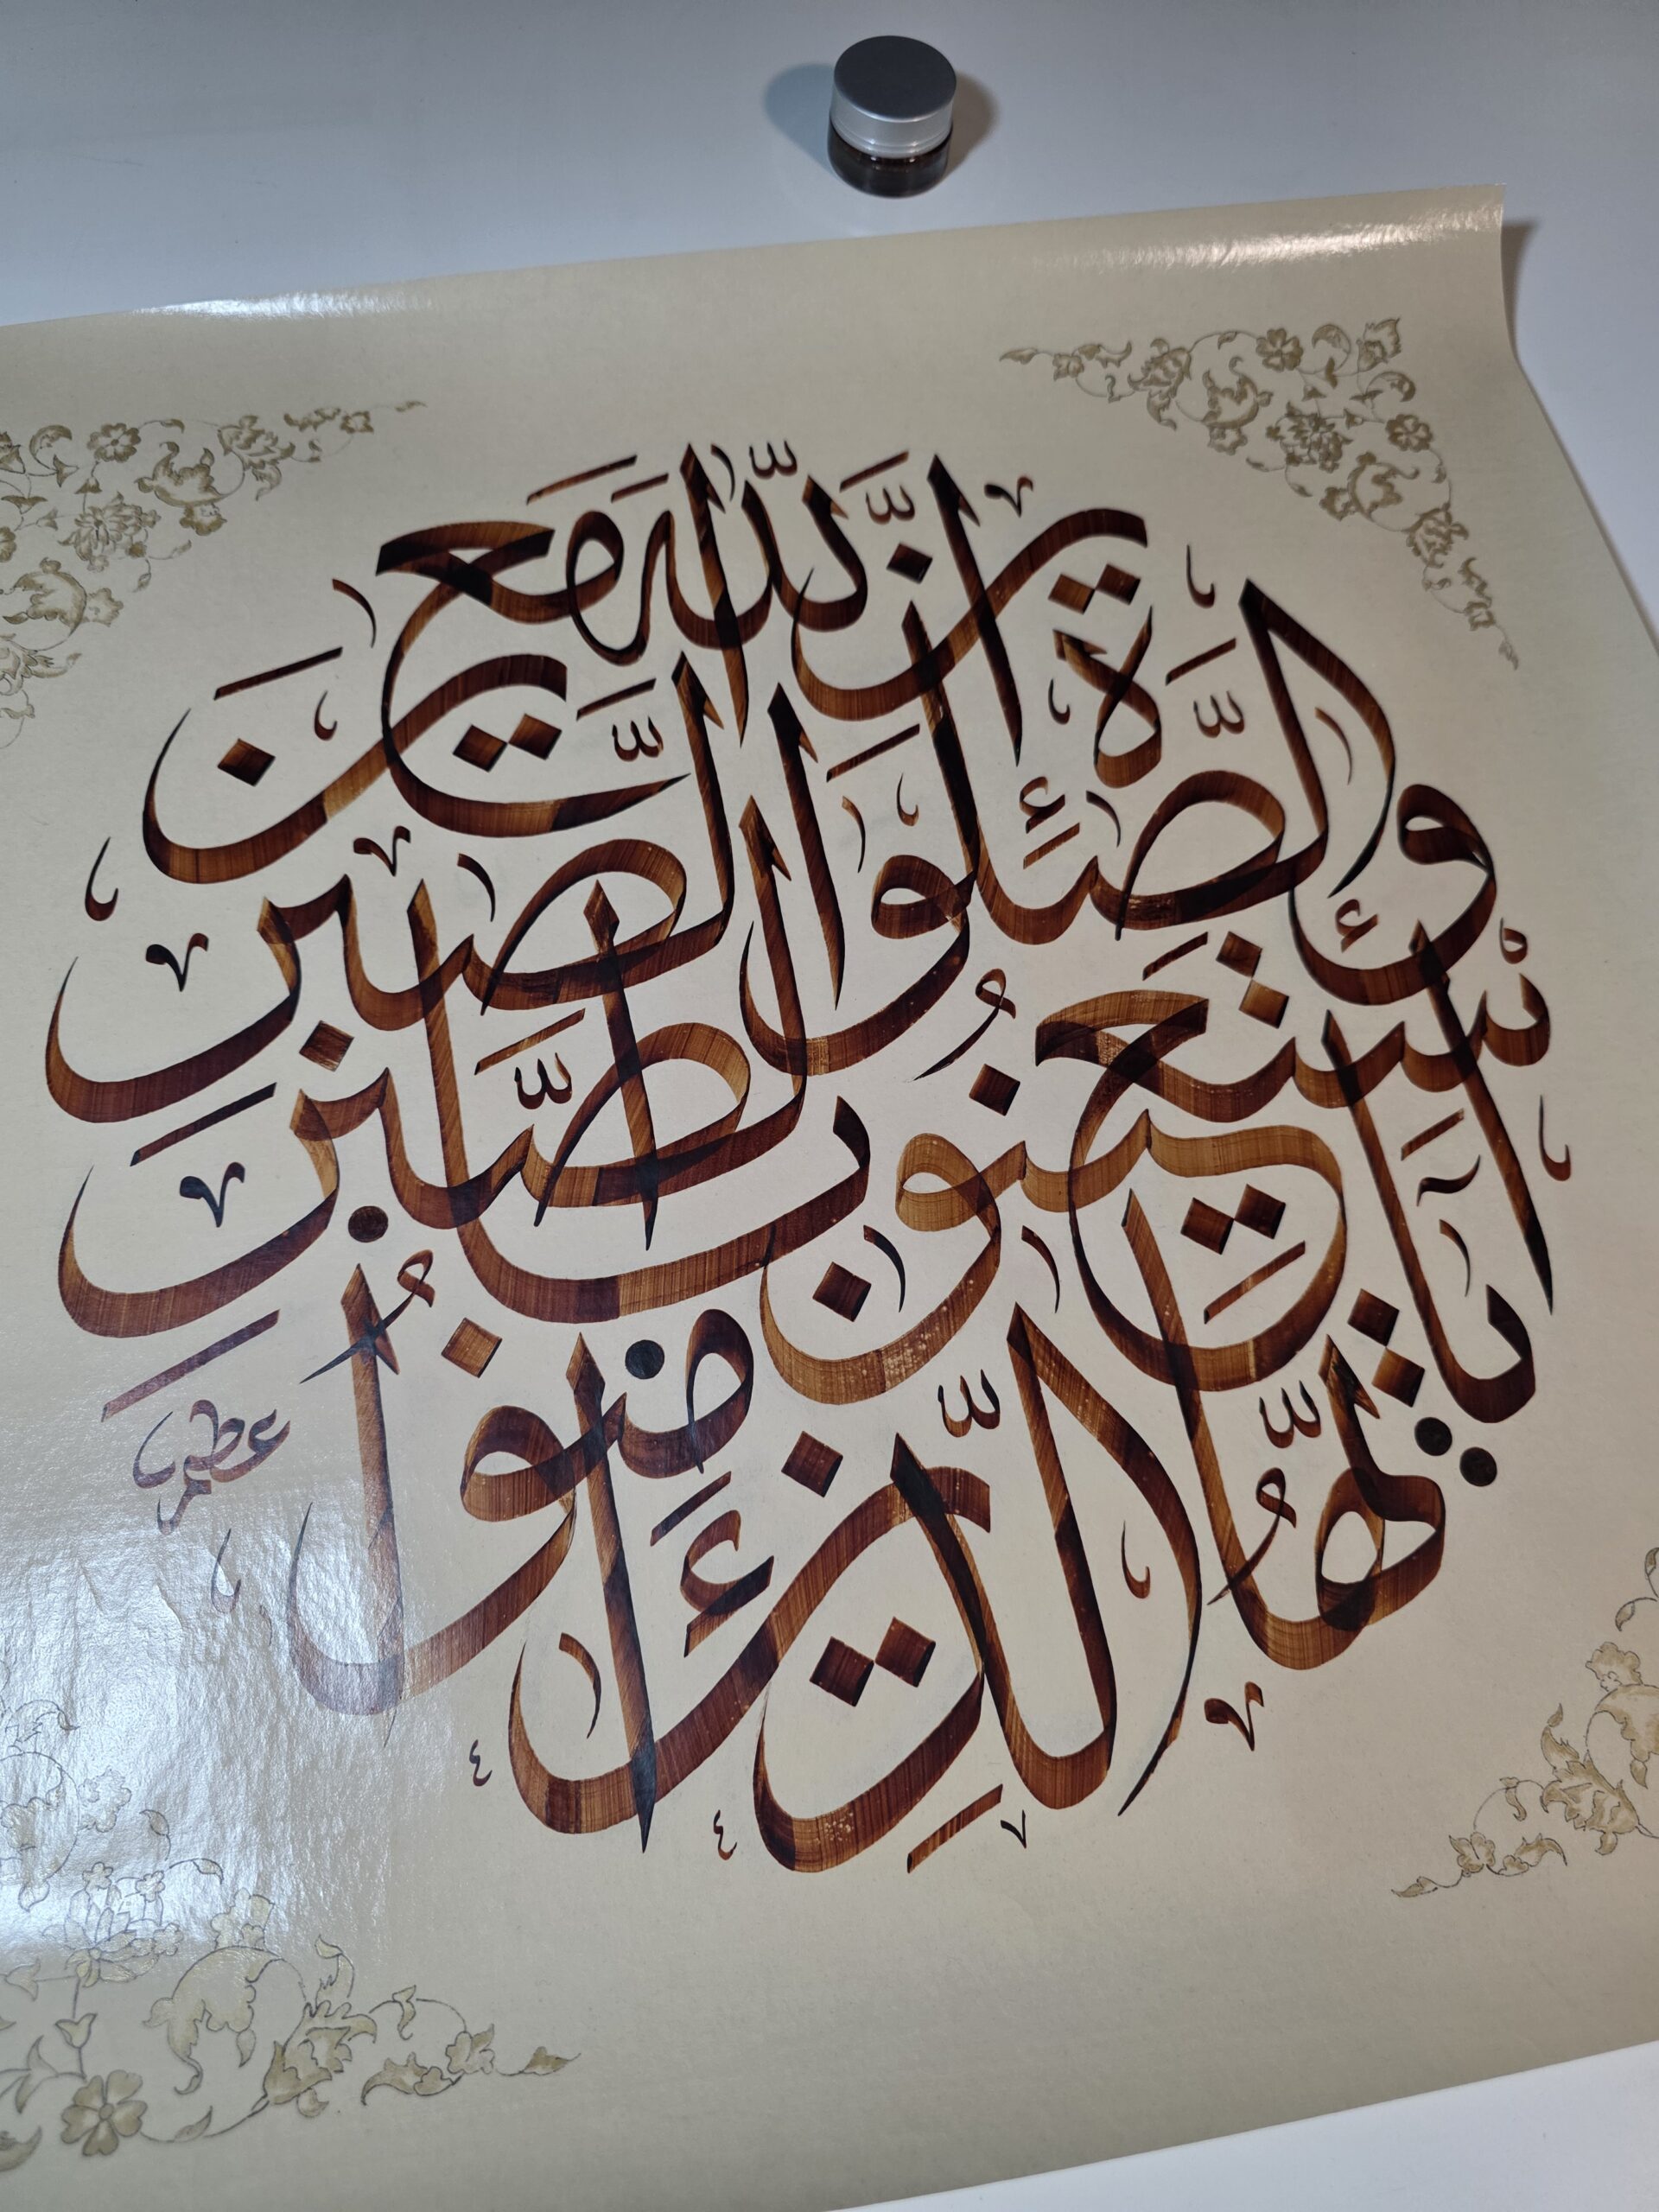 يَٰٓأَيُّهَا الَّذِينَ ءَامَنُوا
اسْتَعِينُوا بِالصَّبْرِ
وَالصَّلَوٰةِ
إِنَّ اللَّهَ مَعَ الصَّٰبِرِينَ